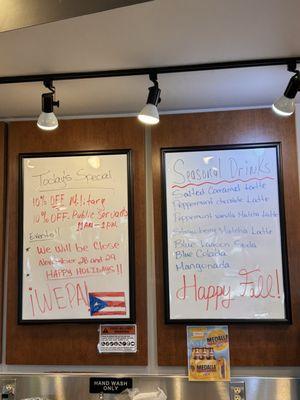 Today's Special
10% OFF Military
10% OFF Public Servants
11AM - 1PM
Events!!
We will be close
November 28 and 29
HAPPY HOLIDAYS!!
¡WEPA!
Seasonal Drinks
Salted Caramel Latte
Peppermint chocolate Latte
Peppermint vanilla Matcha Latte
Strawberry Matcha Latte
Blue Lagoon Soda
Blue Colada
Mangonada
Happy Fall!
MEDALLA
HAND WASH
ONLY